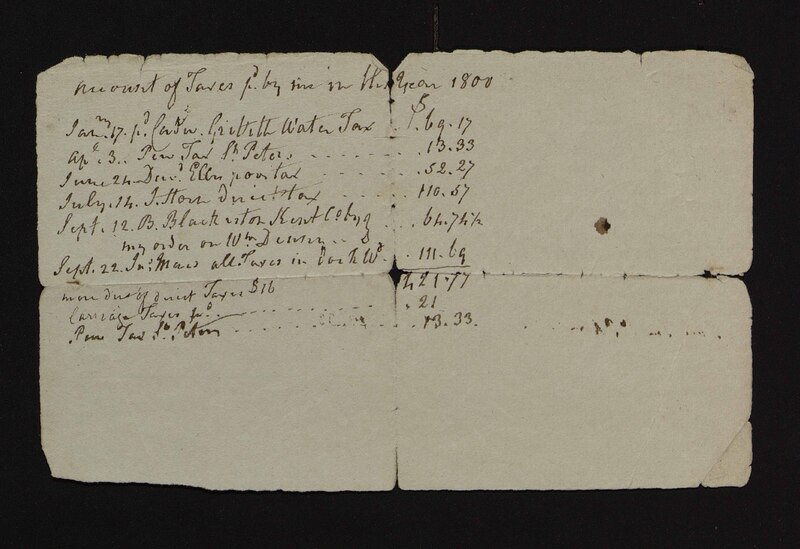 Account of Taxes pd. by me in the Year 1800
$
Jany. 17. pd. Griffith Water Tax . . 69.17
Apl. 3.. Pew Tax St. Peters . . . . . . 13.33
June 24. Davd. Ellis poor tax . . . . 52.27
July. 14. J. Horn direct tax . . . . 110.57
Sept. 12. B. Blackiston Kent Co by . . 64.74½
my order on Wm. Denser . .
Sept. 22. Jno. Mears all Taxes in Dock Wd. . 111.69
421.77
more due of direct Taxes $16
Carriage Taxes pd. . . . . . . . . 21
Pew Tax St. Peters . . . . . . . . 13.33